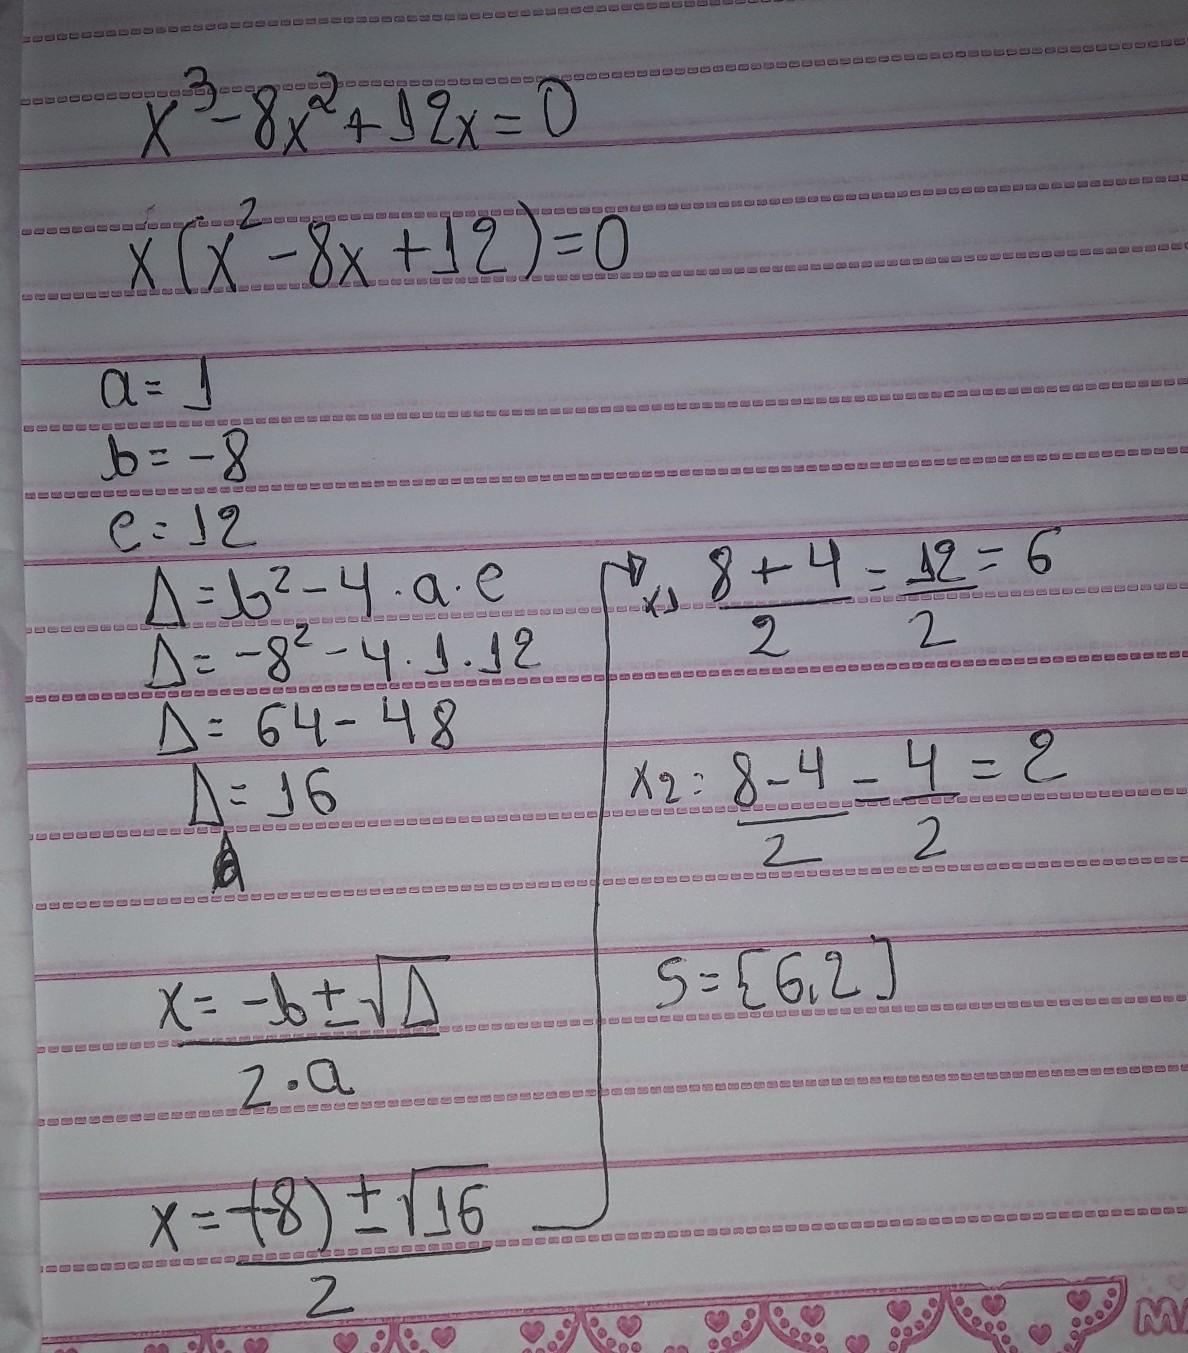 x³-8x²+12x=0
x(x²-8x+12)=0
a=1
b=-8
c=12
Δ=b²-4.a.c
Δ=-8²-4.1.12
Δ=64-48
Δ=16
x=-b±√Δ
2.a
x=-(-8)±√16
2
x1 8+4=12=6
2 2
x2=8-4=4=2
2 2
S={6,2}